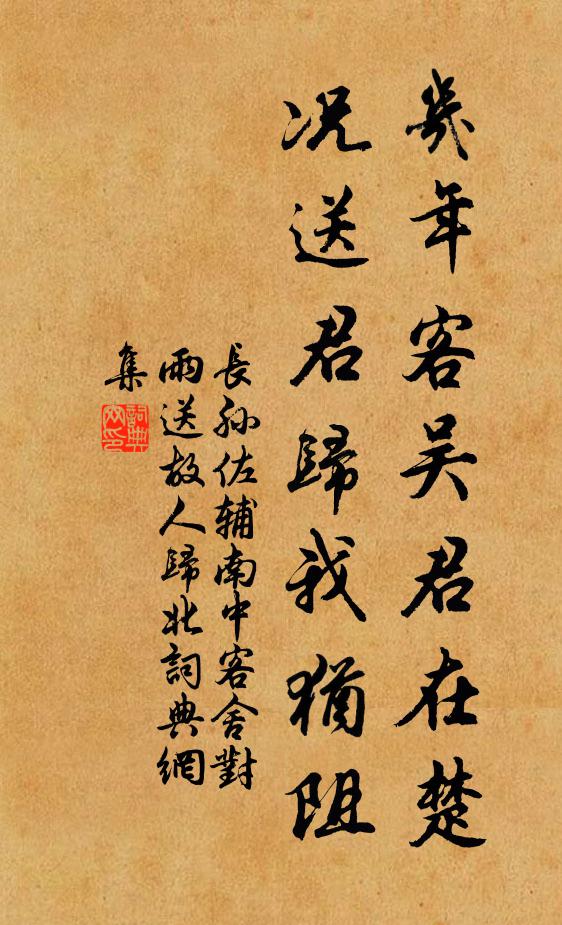 幾年客吳君在楚
況送君歸我猶阻
長孫佐輔南中客舍對
雨送故人歸北詞典網
集
詞典網印